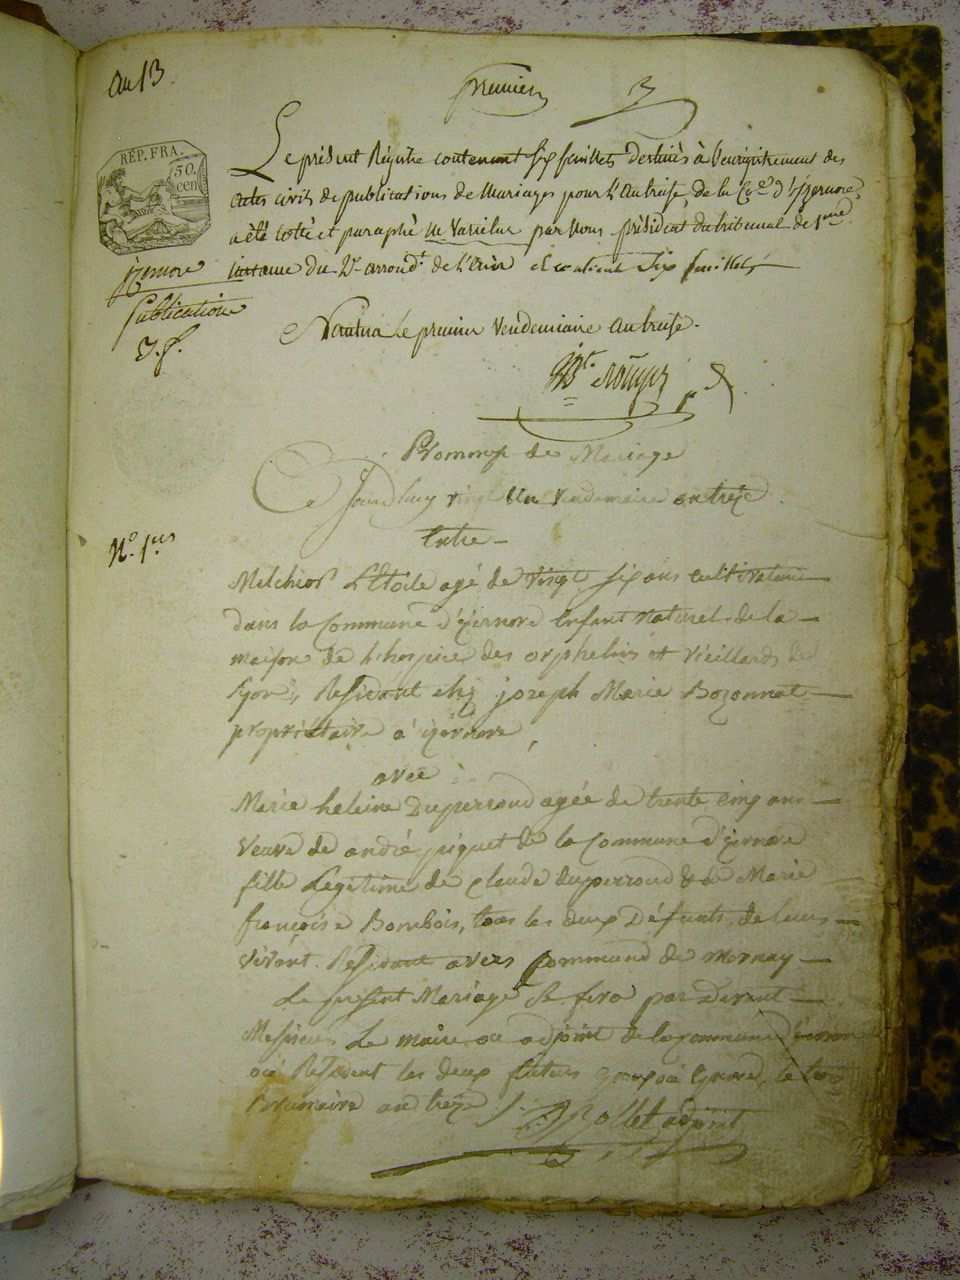 an 13.
premier
RÉP. FRA.
50.
cen
Le présent Régistre contenant six feuillets destinés à l'enrégistrement des
actes civils de publications de Mariages pour l'an treise, de la Cne d'Izernore,
a été cotté et paraphé ne varietur par Nous président du tribunal de 1ere
instance du 2e arrondt de l'Ain et contient six feuillets
Izernore
Publication
Nantua le premier Vendemiaire an treise.
Promesse de Mariage
Ce Jourdhuy vingt un vendemiaire an treze
Entre
N.° 1er
Melchior L'Etoile agé de vingt six ans cultivateur
dans la Commune d'izernore Enfant Naturel de la
maison de l'hospice des orphelins et vieillards de
Lyon, Residant chez joseph Marie Bozonnet
propriétaire a izernore,
avec
Marie heleine Duperroud agée de trente cinq ans
veuve de andré piquet de la Commune d'izernore
fille Legitime de Claude duperroud & de Marie
françoise Bombois, tous les deux Défunts, de leurs
vivant Residant a vers Commune de mornay
Le present Mariage se fera par devant
Messieurs Le maire ou adjoint de la commune
ou Resident les deux futurs
Brumaire an treze adjoint